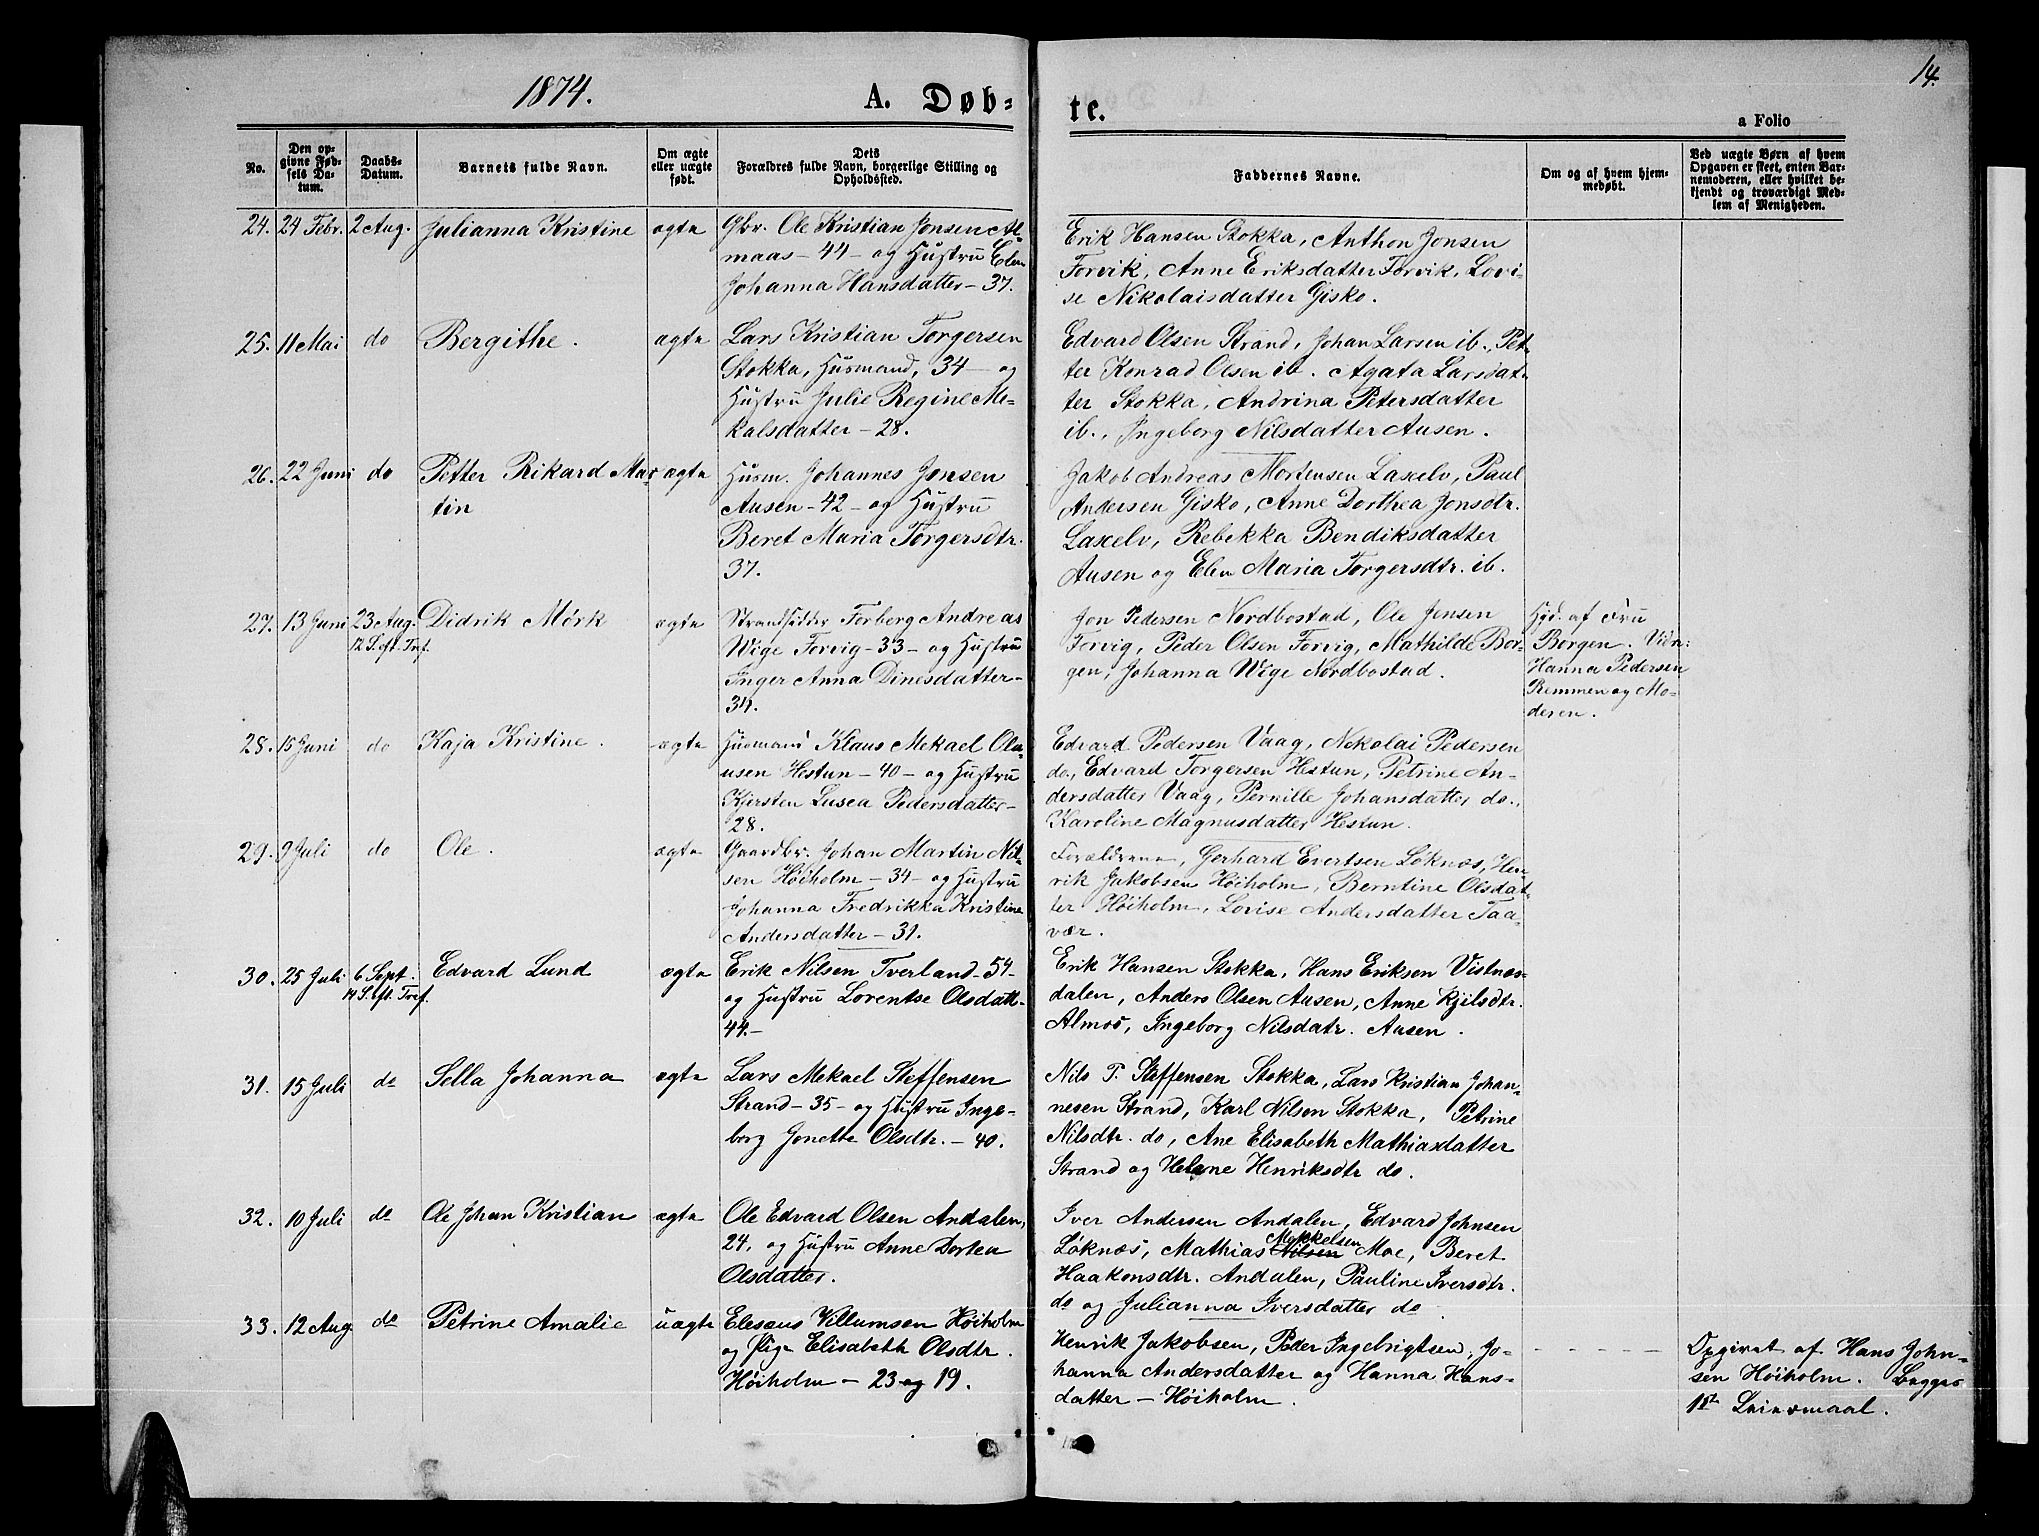 1874.
A. Døb=
te.
14.
a Folio
No.
Den op-
givne Fød-
sels Da-
tum.
Daabs-
Datum.
Barnets fulde Navn.
Om ægte
eller uægte
født.
Dets
Forældres fulde Navn, borgerlige Stilling og
Opholdssted.
Faddernes Navne.
Om og af hvem hjem-
medøbt.
Ved uægte Børn af hvem
Opgaven er skeet, enten Bar-
nemoderen, eller hvilket be-
kjendt og troværdigt Med-
lem af Menigheden.
24. 24 Febr. 2 Aug. Julianna Kristine ægte
Gbr. Ole Kristian Jonsen Al-
maas - 44 - og Hustru Elen
Johanna Hansdatter - 37.
Erik Hansen Stokka, Anthon Jonsen
Forvik, Anne Eriksdatter Forvik, Lovi-
se Nikolaisdatter Gisko.
25. 11 Mai do Bergithe. ægte
Lars Kristian Torgersen
Stokka, Husmand, 34 - og
Hustru Julie Regine Me-
kalsdatter - 28.
Edvard Olsen Strand, Johan Larsen ib., Pet-
ter Konrad Olsen ib. Agata Larsdat-
ter Stokka, Andrina Petersdatter
ib., Ingeborg Nilsdatter Ausen.
26. 22 Juni do Petter Rikard Mar- ægte
tin
Husm. Johannes Jonsen
Ausen - 42 - og Hustru
Beret Maria Torgersdtr.
37.
Jakob Andreas Mortensen Laxelv, Paul
Andersen Gisko, Anne Dorthea Jonsdtr.
Laxelv, Rebekka Bendiksdatter
Ausen og Elen Maria Torgersdtr. ib.
27. 13 Juni 23 Aug. Didrik Mörk ægte
12 S. eft. Tref.
Strandsidder Torberg Andreas
Wige Forvig - 33 - og Hustru
Inger Anna Dinesdatter -
34.
Jon Pedersen Nordbostad, Ole Jensen
Forvig, Peder Olsen Forvig, Mathilde Bor-
gen, Johanna Wige Nordbostad.
Hjd. af Fru
Borgen. Vidn:
Hanna Pedersen
Remmen og Mo-
deren.
28. 15 Juni do Kaja Kristine. ægte
Husmand Klaus Mekael Ola-
usen Hestun - 40 - og Hustru
Kjersten Lusea Pedersdatter -
28.
Edvard Pedersen Vaag, Nekolai Pedersen
do., Edvard Torgersen Hestun, Petrine An-
dersdatter Vaag, Pernille Johansdatter do.,
Karoline Magnusdatter Hestun.
29. 9 Juli do Ole. ægte
Gaardbr. Johan Martin Nil-
sen Höiholm - 34 - og Hustru
Johanna Fredrikka Kristine
Andersdatter - 31.
Forældrene, Gerhard Evertsen Löknæs, Hen-
rik Jakobsen Höiholm, Berntine Olsdat-
ter Höiholm, Lovise Andersdatter Taa-
vær.
30. 25 Juli 6 Sept. Edvard Lund ægte
14 S. eft. Tref.
Erik Nilsen Tverland - 54 -
og Hustru Lorentse Olsdatt.
44. -
Erik Hansen Stokka, Hans Eriksen Vistnes-
dalen, Anders Olsen Ausen, Anne Kjilsdtr.
Almos, Ingeborg Nilsdatr. Ausen.
31. 15 Juli do Sella Johanna ægte
Lars Mekael Steffensen
Strand - 35 - og Hustru Inge-
borg Jonetta Olsdtr. - 40.
Nils P. Steffensen Stokka, Lars Kristian Johan-
nesen Strand, Karl Nilsen Stokka, Petrine
Nilsdtr. do, Ane Elisabeth Mathiasdatter
Strand og Helene Henriksdtr do.
32. 10 Juli do Ole Johan Kristian ægte
Ole Edvard Olsen Andalen,
24, og Hustru Anne Dortea
Olsdatter.
Iver Andersen Andalen, Edvard Johnsen
Löknæs, Mathias Nilsen Mykkelsen Moe, Beret
Haakonsdtr. Andalen, Pauline Iversdtr.
do og Julianna Iversdatter do
33. 12 Aug. do Petrine Amalie uægte
Elesæus Villumsen Höiholm
og Pige Elisabeth Olsdtr.
Höiholm - 23 og 19.
Henrik Jakobsen, Peder Ingebrigtsen, Jo-
hanna Andersdatter og Hanna Hans-
datter - Höiholm.
Opgivet af Hans John-
sen Höiholm. Begges
1ste Leiermaal.